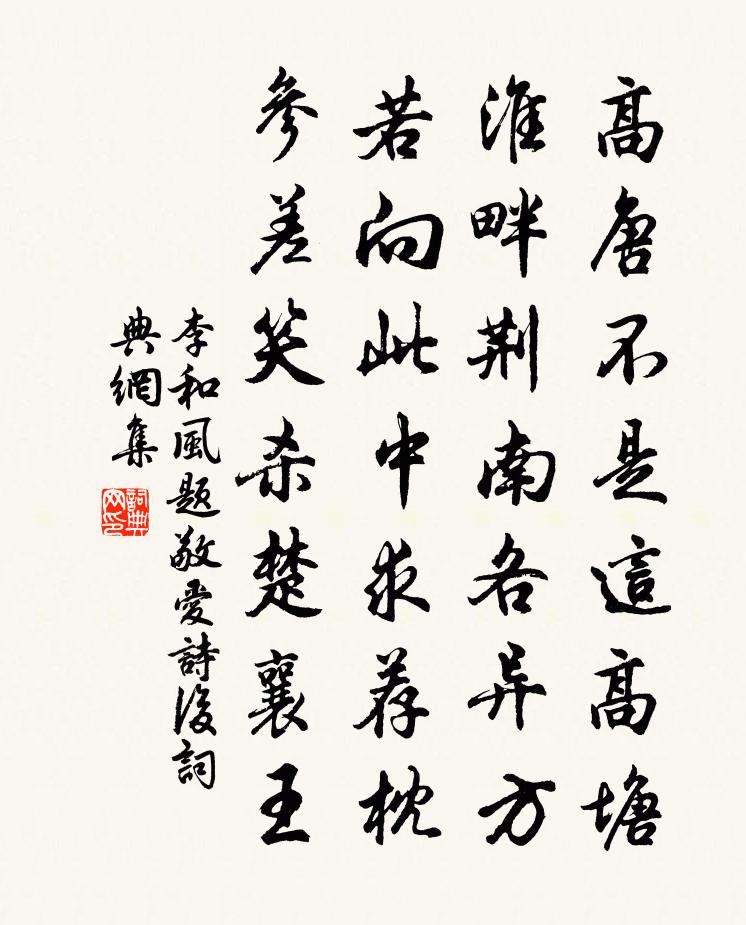 高唐不是這高塘
淮畔荆南各异方
若向此中求荐枕
參差笑杀楚襄王
李和風题敬愛詩後詞
典網集
詞典
网印